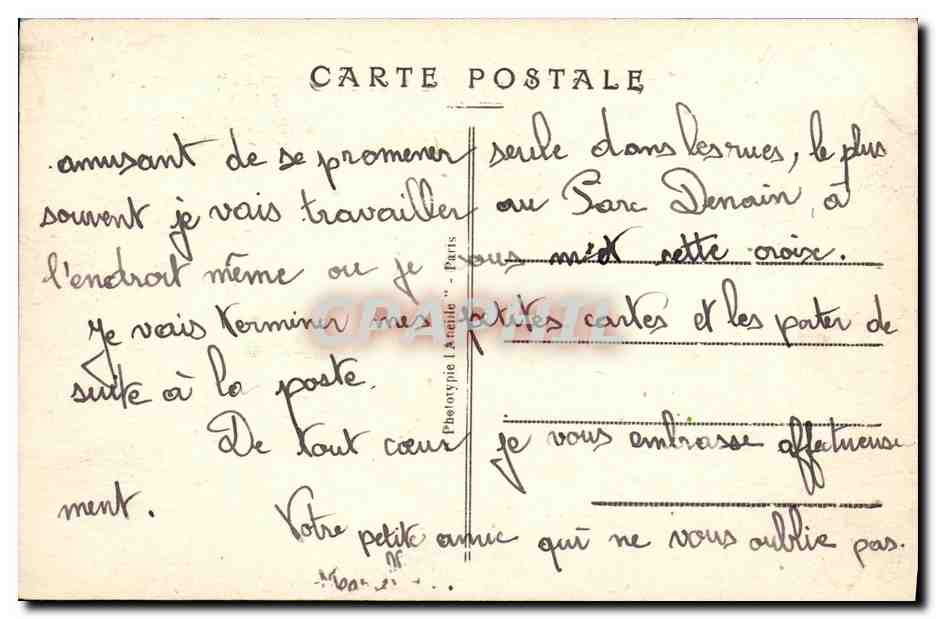 CARTE POSTALE
amusant de se promener seule dans les rues, le plus
souvent je vais travailler au Parc Denain, à
l'endroit même ou je vous met cette croix.
Je vais terminer mes petites cartes et les porter de
suite à la poste.
De tout cœur je vous embrasse affectueuse
ment.
Votre petite amie qui ne vous oublie pas.
Phototypie "l'Abeille" - Paris
CPAPHIL